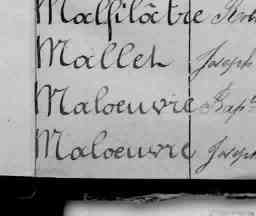 Malfilâtre
Mallet Joseph
Maloeuvre Bapt
Maloeuvre Joseph